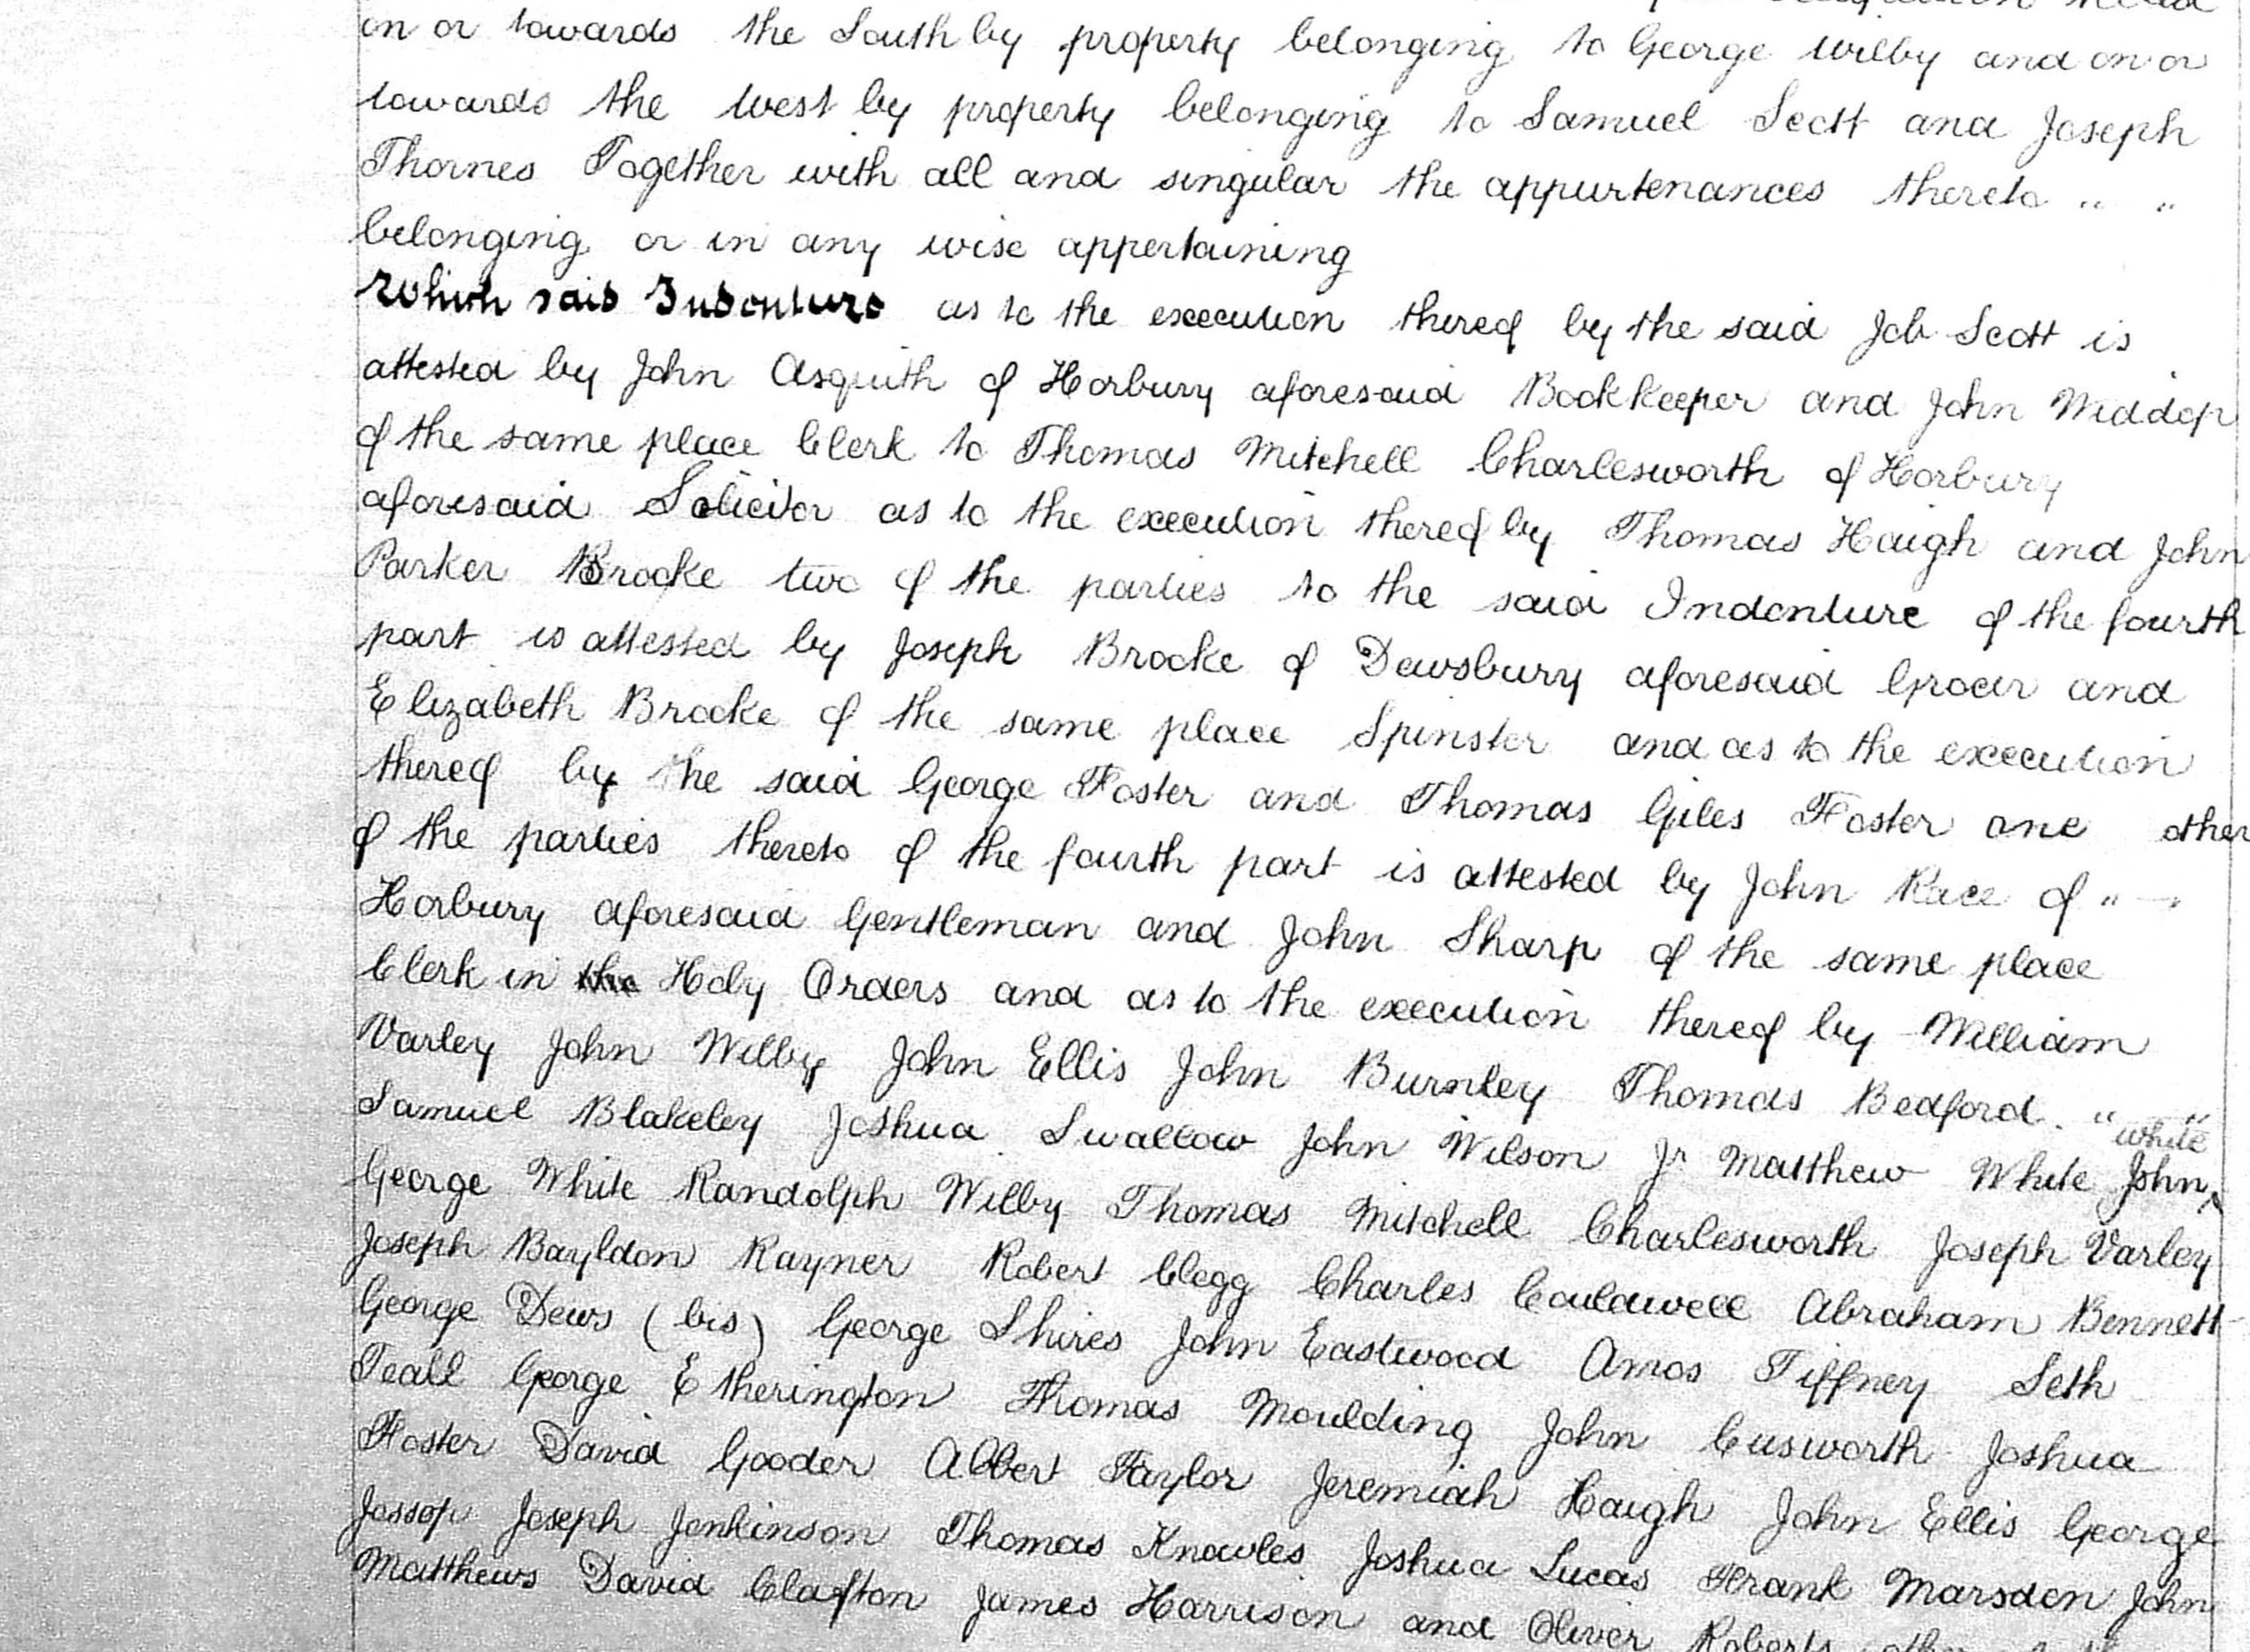 on or towards the South by property belonging to George Wilby and on or
towards the West by property belonging to Samuel Scott and Joseph
Thornes Together with all and singular the appurtenances thereto " "
belonging or in any wise appertaining
Which said Indenture as to the execution thereof by the said Job Scott is
attested by John Asquith of Horbury aforesaid Bookkeeper and John Widdop
of the same place Clerk to Thomas Mitchell Charlesworth of Horbury
aforesaid Solicitor as to the execution thereof by Thomas Haigh and John
Parker Brooke two of the parties to the said Indenture of the fourth
part is attested by Joseph Brooke of Dewsbury aforesaid Grocer and
Elizabeth Brooke of the same place Spinster and as to the execution
thereof by the said George Foster and Thomas Giles Foster one other
of the parties thereto of the fourth part is attested by John Race of "
Horbury aforesaid Gentleman and John Sharp of the same place
Clerk in the Holy Orders and as to the execution thereof by William
Varley John Wilby John Ellis John Burnley Thomas Bedford " "
Samuel Blakeley Joshua Swallow John Wilson Jr Matthew White John White
George White Randolph Wilby Thomas Mitchell Charlesworth Joseph Varley
Joseph Bayldon Rayner Robert Clegg Charles Couldwell Abraham Bennett
George Dews (bis) George Shires John Eastwood Amos Tiffney Seth
Teall George Etherington Thomas Moulding John Cusworth Joshua
Foster David Gooder Albert Taylor Jeremiah Haigh John Ellis George
Jessop Joseph Jenkinson Thomas Knowles Joshua Lucas Frank Marsden John
Matthews David Clafton James Harrison and Oliver Roberts